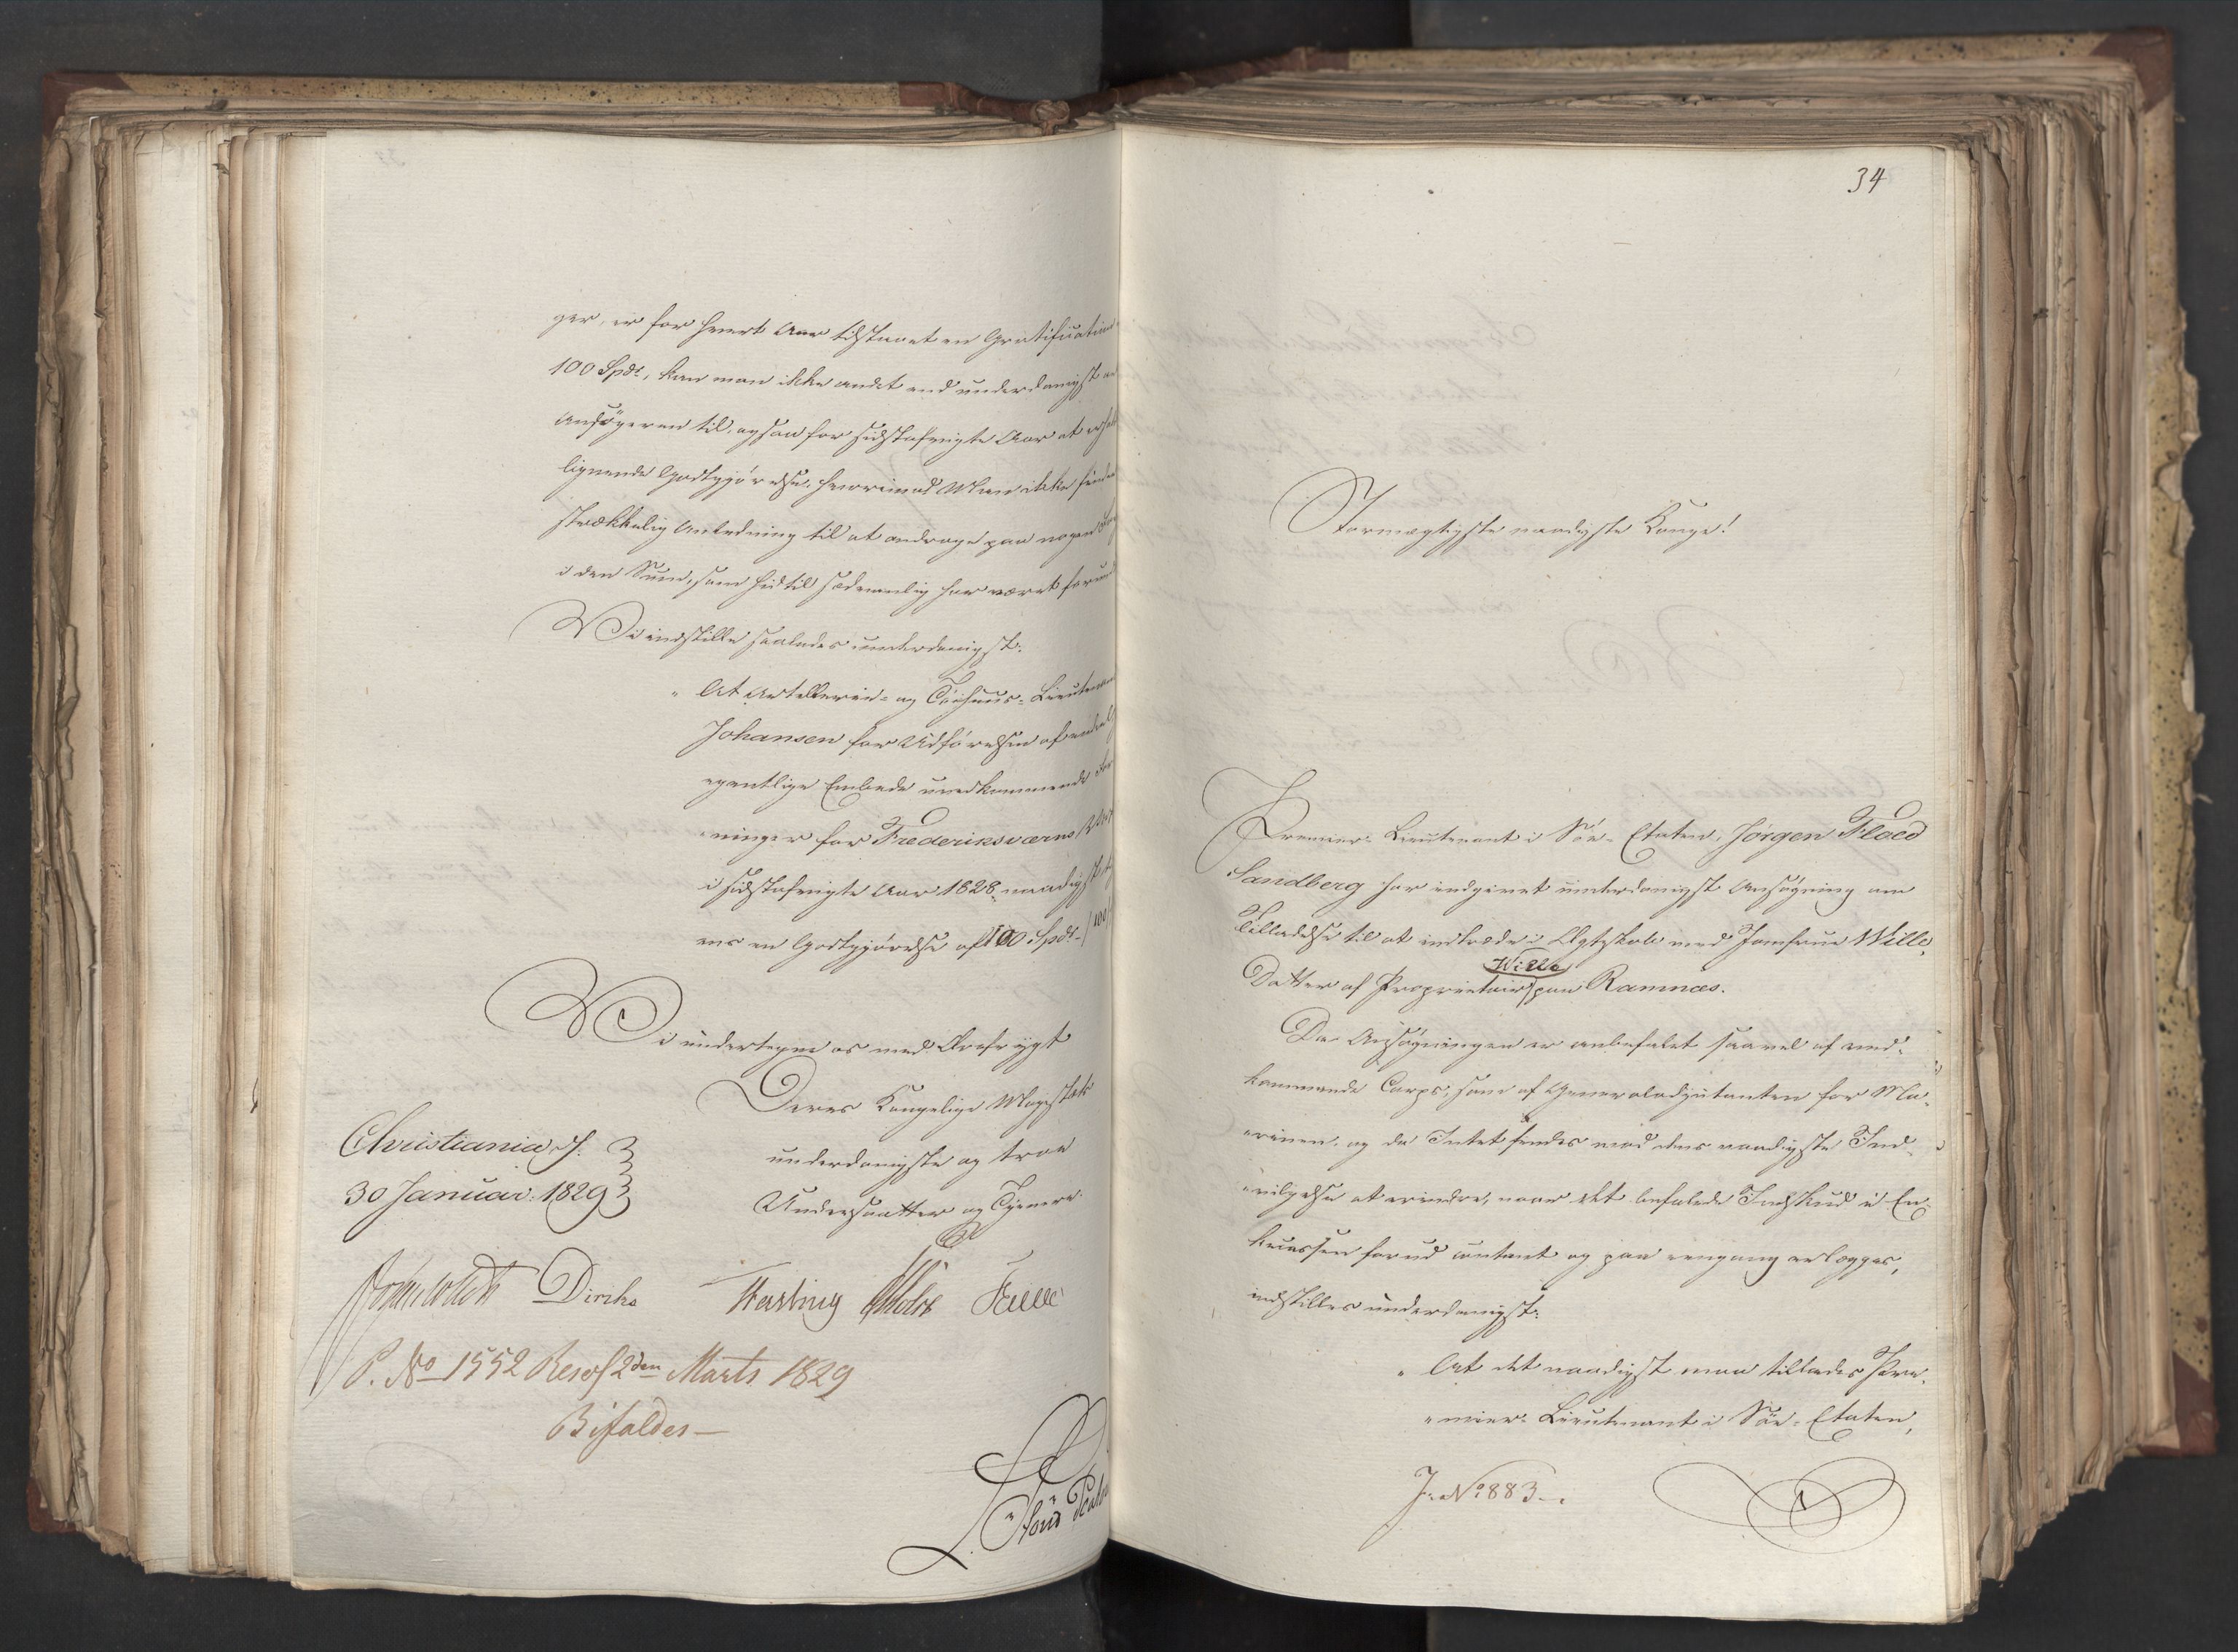 ger, er for hvert Aar tilstaaet en Gratification
100 Spdr, kan man ikke andet end underdanigst an
Ansøgeren til, ogsaa for sidstafvigte Aar at erhol
lignende Godtgjørelse, hvorimod Man ikke finder
strækkelig Anledning til at androge paa nogen For
i den Sum, som hidtil sædvanlig har været forund
Vi indstille saaledes underdanigst:
"At Artillerie- og Töihuus-Lieutenan
Johansen for Udførelsen af endeel
egentlige Embede uvedkommende For
"ninger for Frederiksværns
i sidstafvigte Aar 1828, naadigst
en Godtgjørelse af 100 Spdr (100
Vi undertegne os med Ærefrygt
Deres Kongelige Majestæts
underdanigste og troe
Undersaatter og Tjenere.
Christiania d.
30 Januar 1829
Diriks Fasting Holst
P. No 1552 Resol 2den Marts 1829
Bifaldes —
34
Stormægtigste naadigste Konge!
Premier-Lieutenant i Söe-Etaten, Jørgen Flood
Sandberg har indgivet underdanigst Ansøgning om
Tilladelse til at indtræde i Ægteskab med Jomfrue Wille,
Datter af Proprietair Wille paa Ramnæs.
Da Ansøgningen er anbefalet saavel af ved-
kommende Corps, som af Generaladjutanten for Ma-
"rinen, og da Intet findes mod dens naadigste Ind-
"vilgelse at erindre, naar det befalede Indskud i En-
kecassen forud contant og paa eengang erlægges,
indstilles underdanigst:
"At det naadigst maa tillades Pre-
"mier-Lieutenant i Söe-Etaten,
J. No 883.